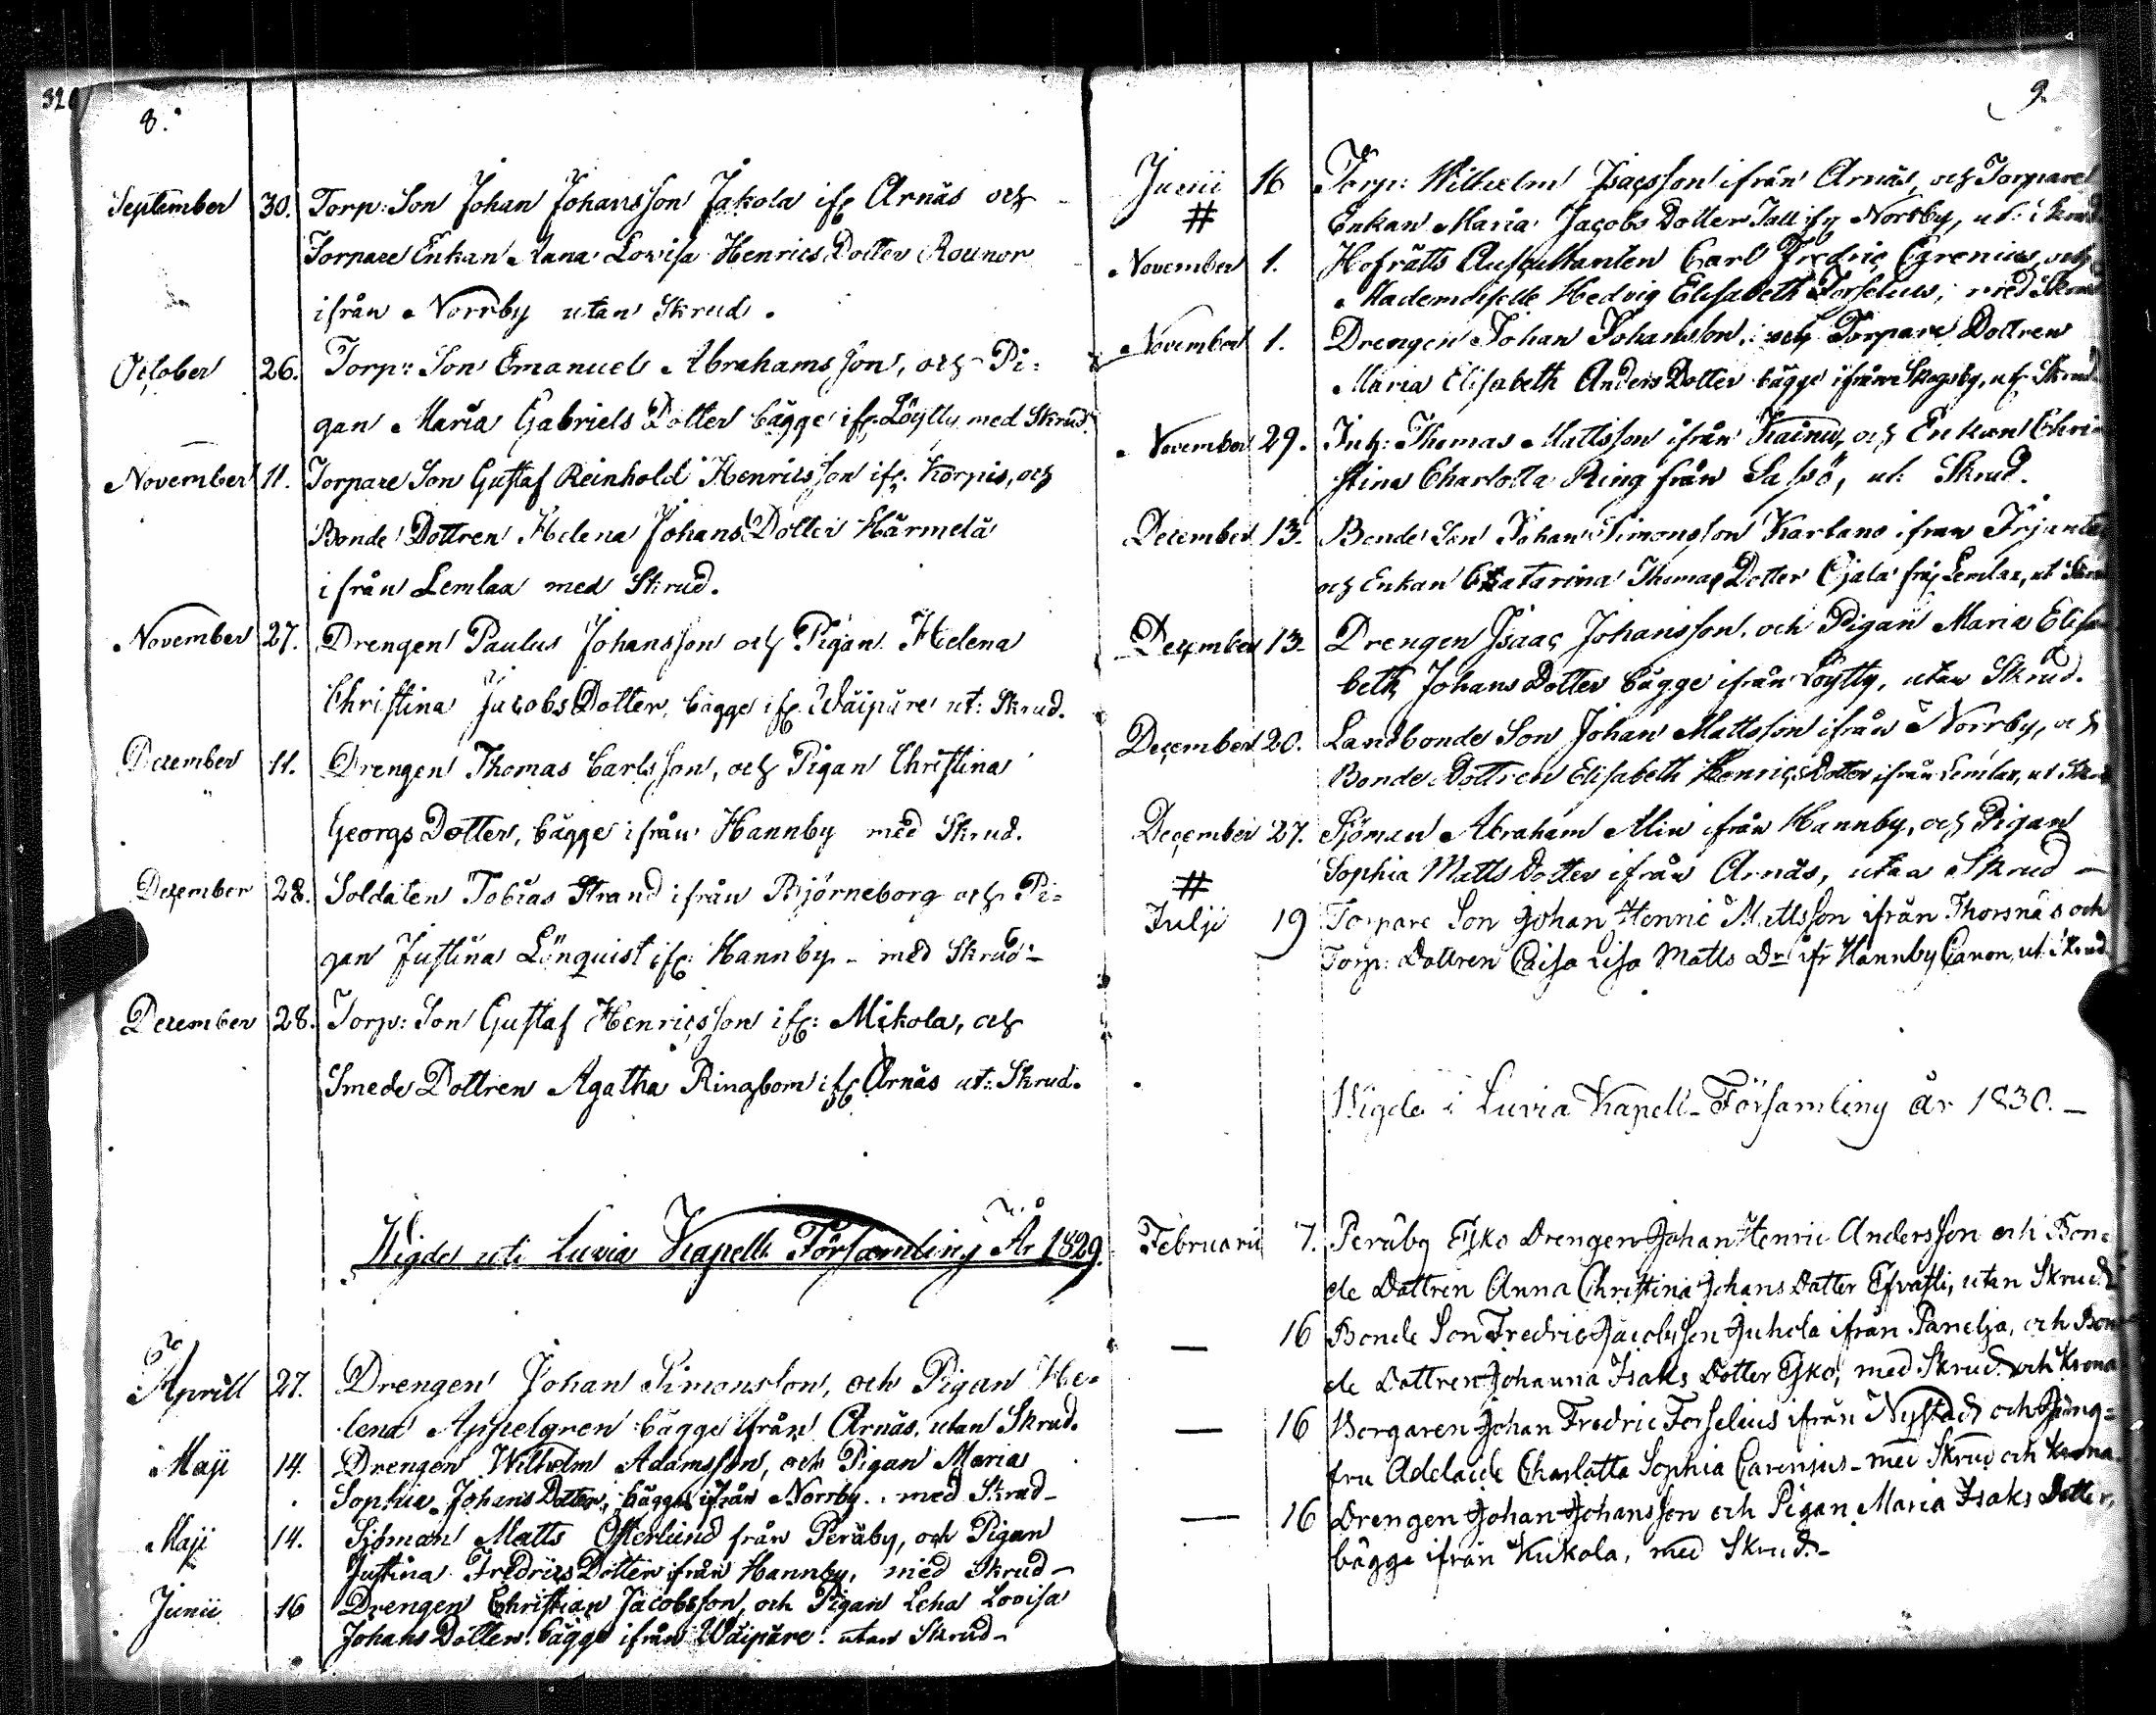 320
8.
September 30. Torp: Son Johan Johansson Jakola ifr Arnäs och
Torpare Enkan Anna Lovisa Henrics Dotter Rounor
ifrån Norrby utan Skrud.
October 26. Torp: Son Emanuel Abrahamsson, och Pi=
gan Maria Gabriels Dotter bägge ifr. Löytty med Skrud.
November 11. Torpare Son Gustaf Reinhold Henricsson ifr. Korpis, och
Bonde Dottren Helena Johans Dotter Härmelä
ifrån Lemlax med Skrud.
November 27. Drengen Paulus Johansson och Pigan Helena
Christina Jacobs Dotter, bägge ifr. Wäipäre ut: Skrud.
December 11. Drengen Thomas Carlsson, och Pigan Christina
Georgs Dotter, bägge ifrån Hannby med Skrud.
December 28. Soldaten Tobias Strand ifrån Björneborg och Pi=
gan Justina Lönquist ifr: Hannby - med Skrud -
December 28. Torp: Son Gustaf Henricsson ifr: Mikola, och
Smeds Dottren Agatha Ringbom ifr Arnäs ut: Skrud.
Wigde uti Luvia Kapell Församling År 1829.
Aprill 27. Drengen Johan Simonsson, och Pigan He=
lena Appelgren bägge ifrån Arnäs, utan Skrud.
Maji 14. Drengen Wilhelm Adamsson, och Pigan Maria
Sophia Johans Dotter, bägge ifrån Norrby. med Skrud -
Maji 14. Sjöman Matts Österlund från Peräby, och Pigan
Justina Fredrics Dotter ifrån Hannby, med Skrud -
Junii 16 Drengen Christian Jacobsson, och Pigan Lena Lovisa
Johans Dotter bägge ifrån Wäipäre utan Skrud -
9.
Junii 16 Torp: Wilhelm Isacsson ifrån Arnäs, och Torpare
# Enkan Maria Jacobs Dotter Tall ifr Norrby, ut: Skrud
November 1. Hofrätts Auscultanten Carl Fredric Cgrenius, och
Mademoiselle Hedvig Elisabeth Forselius, med Skrud
November 1. Drengen Johan Johansson, och Torpare Dottren
Maria Elisabeth Anders Dotter bägge ifrån Skogsby, ut. Skrud
November 29. Inh: Thomas Mattsson ifrån Kainu, och Enkan Chri=
stina Charlotta Ring från Sassö, ut. Skrud.
December 13. Bonde Son Johan Simonsson Karlano ifrån Irjante
och Enkan Catarina Thomas Dotter Ojala från Lemlax, ut Skrud
December 13. Drengen Isaac Johansson, och Pigan Maria Elisa
beth Johans Dotter bägge ifrån Löytty, utan Skrud.
December 20. Landbonde Son Johan Mattsson ifrån Norrby, och
Bonde Dottren Elisabeth Henrics Dotter ifrån Lemlax, ut Skrud
December 27. Sjöman Abraham Alin ifrån Hannby, och Pigan
Sophia Matts Dotter ifrån Arnäs, utan Skrud -
#
Julji 19 Torpare Son Johan Henric Mattsson ifrån Thorsnäs och
Torp: Dottren Caisa Lisa Matts Dr ifr Hannby Canon, ut Skrud
Wigde i Luvia Kapell-Församling år 1830. -
Februarii 7. Peräby Esko Drengen Johan Henric Andersson och Bon=
de Dottren Anna Christina Johans Dotter Efvasti, utan Skrud
— 16 Bonde Son Fredric Jacobsson Juhola ifrån Panelja, och Bon
de Dottren Johanna Isaks Dotter Esko, med Skrud och Krona
— 16 Borgaren Johan Fredric Forselius ifrån Nystad och Jung=
fru Adelaide Charlotta Sophia Carenius - med Skrud och Krona
— 16 Drengen Johan Johansson och Pigan Maria Isaks Dotter,
bägge ifrån Kukola, med Skrud. -